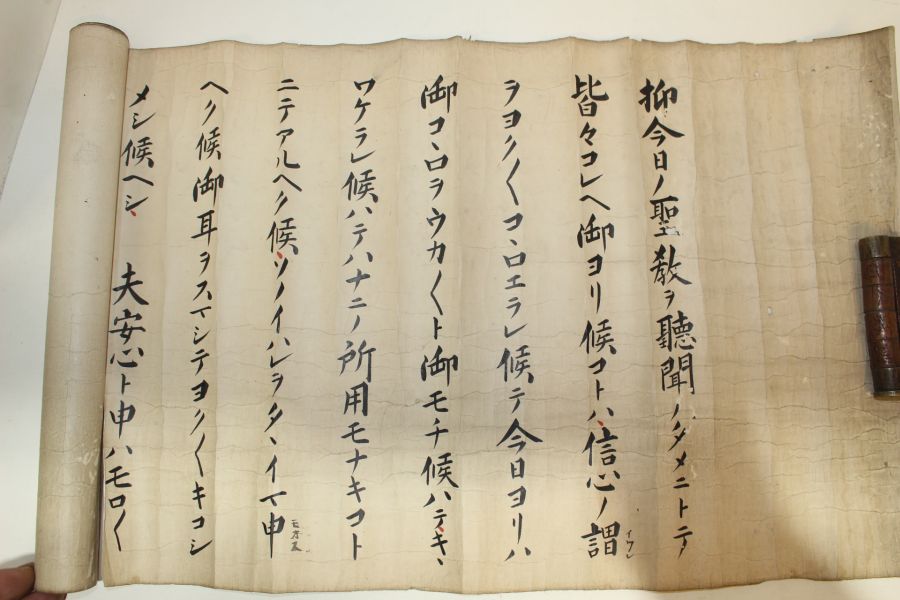 抑今日ノ聖敎ヲ聽聞ノタメニトテ
皆々コレヘ御ヨリ候コトハ信心ノ謂イワレ
ヲヨク〱コヽロエラレ候テ今日ヨリハ
御コヽロヲウカ〱ト御モチ候ハテキヽ
ワケラレ候ハテハナニノ所用モナキコト
ニテアルヘク候ソノイハレヲタヽイマ申
ヘク候御耳ヲスマシテヨク〱キコシ
メシ候ヘシ 夫安心ト申ハモロ〱